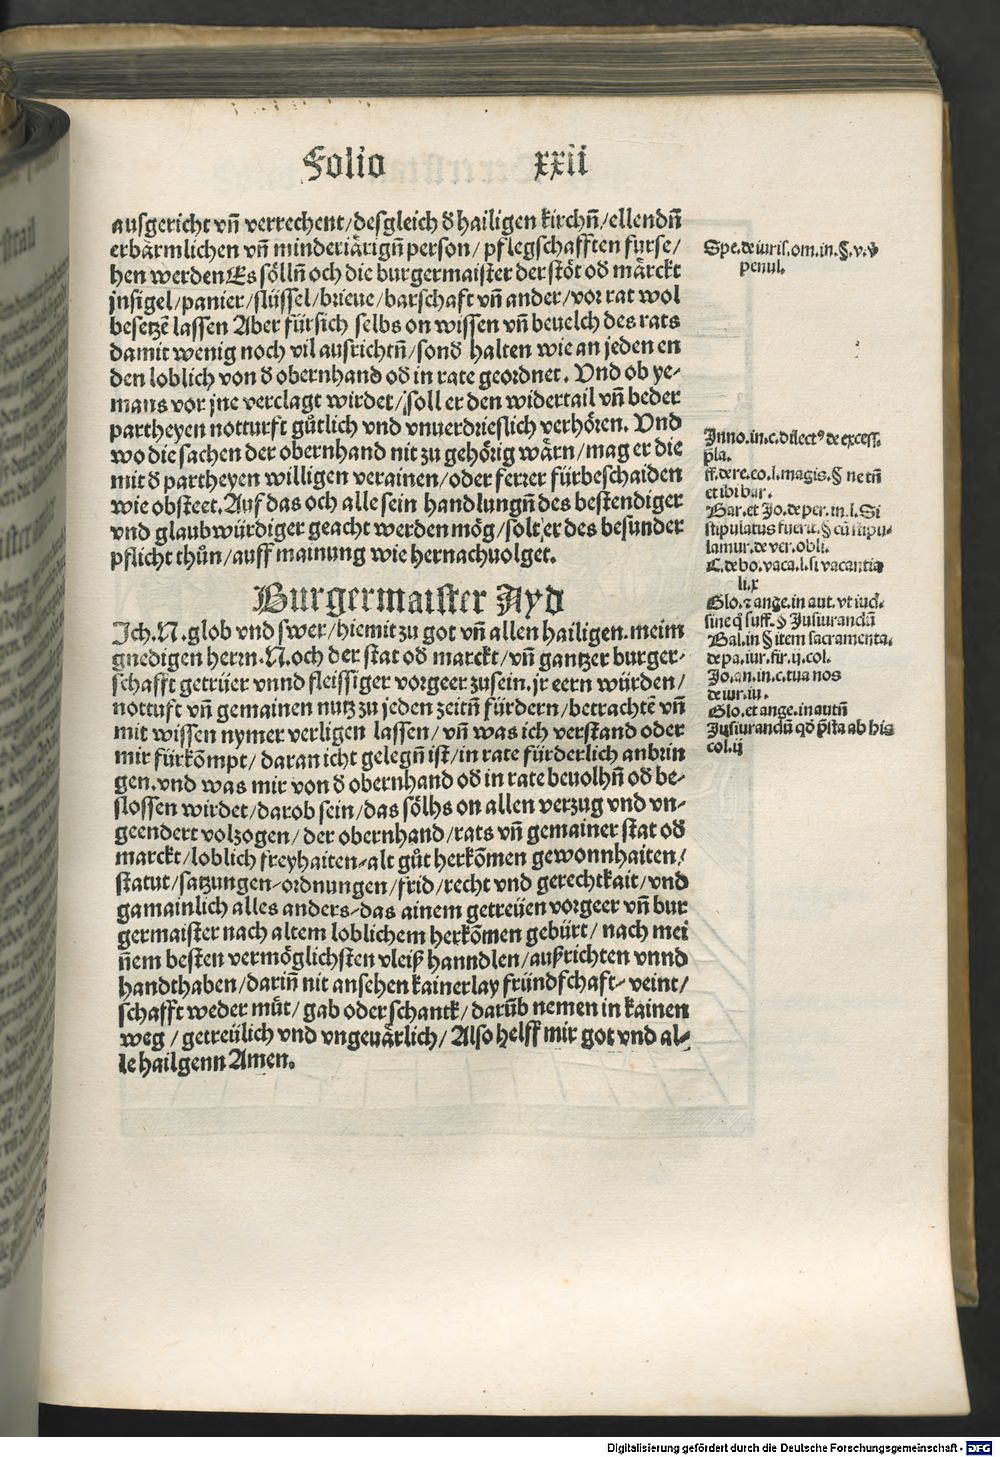 Folio xxii
ausgericht vn̄ verrechent/desgleich d̄ hailigen kirchn̄/ellendn̄
erbärmlichen vn̄ minderiärign̄ person/pflegschafften fürse/
hen werden Es sölln̄ och die burgermaister der stöt od̄ märckt
jnsigel/panier/slüssel/brieue/barschaft vn̄ ander/vor rat wol
besetzē lassen Aber für sich selbs on wissen vn̄ beuelch des rats
damit wenig noch vil ausrichtn̄/sond̄ halten wie an jeden en
den loblich von d̄ obernhand od̄ in rate geordnet. Vnd ob ye-
mans vor jne verclagt wirdet/soll er den widertail vn̄ beder
partheyen notturft gůtlich vnd vnuerdrieslich verhören. Vnd
wo die sachen der obernhand nit zu gehörig wärn/mag er die
mit d̄ partheyen willigen verainen/oder ferrer fürbeschaiden
wie obsteet. Auf das och alle sein handlungn̄ des bestendiger
vnd glaubwürdiger geacht werden mög/solt er des besunder
pflicht thůn/auff mainung wie hernachuolget.
Burgermaister Ayd
Ich. N. glob vnd swer/hiemit zu got vn̄ allen hailigen. meim
gnedigen herrn. N. och der stat od̄ marckt/vn̄ gantzer burger-
schafft getrüer vnnd fleissiger vorgeer zusein. jr eern würden/
nottuft vn̄ gemainen nutz zu jeden zeitn̄ fürdern/betrachtē vn̄
mit wissen nymer verligen lassen/vn̄ was ich verstand oder
mir fürkōmpt/daran icht gelegn̄ ist/in rate fürderlich anbrin
gen. vnd was mir von d̄ obernhand od̄ in rate beuolhn̄ od̄ be-
slossen wirdet/darob sein/das sölhs on allen verzug vnd vn-
geendert volzogen/der obernhand/rats vn̄ gemainer stat od̄
marckt/loblich freyhaiten-alt gůt herkōmen gewonnhaiten/
statut/satzungen-ordnungen/frid/recht vnd gerechtkait/vnd
gamainlich alles anders-das ainem getreüen vorgeer vn̄ bur
germaister nach altem loblichem herkōmen gebürt/nach mei
n̄em besten vermöglichsten vleiß hanndlen/außrichten vnnd
handthaben/darin̄ nit ansehen kainerlay fründschaft-veint/
schafft weder müt/gab oder schanck/darūb nemen in kainen
weg/getreülich vnd vngeuärlich/Also helff mir got vnd al-
le hailgenn Amen.
Spe. de iuris. om. in. §. v. ꝟ
penul.
Inno. in. c. dilectꝰ de excess.
pla.
ff. de re. eo. l. magis. § ne tn̄
et ibi bar.
Bar. et Jo. de per. in. l. Si
stipulatus fuerit. § cū stipu-
lamur. de ver. obli.
C. de bo. vaca. l. si vacantia
li. x
Glo. ⁊ ange. in aut. vt iud.
sine suff. § Jusiurandū
Bal. in § item sacramenta.
de pa. iur. fir. ij. col.
Jo. an. in. c. tua nos
de iur. iu.
Glo. et ange. in autn̄
Jusiurandū qd̄ p̄sta ab his
col. ij
Digitalisierung gefördert durch die Deutsche Forschungsgemeinschaft - DFG